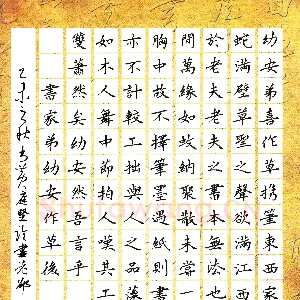 幼安弟喜作草携筆東西家
蛇滿壁草聖之聲欲滿江西
於老夫老夫之書本無法也
問萬緣如蚊蚋聚散未嘗一
胸中故不擇筆墨遇紙則書
亦不計較工拙與人之品藻
如木人舞中節拍人笑其工
雙蕭然矣幼安然吾言乎
書家弟幼安作草後
乙未之秋書黃庭堅